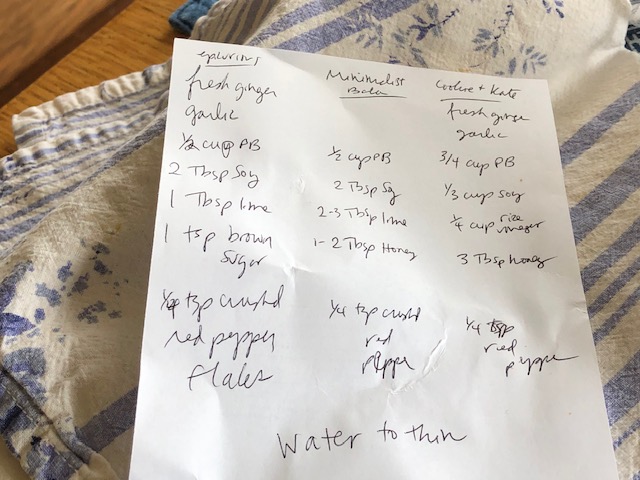 epicurious
fresh ginger
garlic
1/2 cup PB
2 Tbsp Soy
1 Tbsp lime
1 tsp brown
sugar
1/4 tsp crushed
red pepper
flakes
Minimalist
Baker
1/2 cup PB
2 Tbsp Soy
2-3 Tbsp lime
1-2 Tbsp Honey
1/4 tsp crushd
red
pepper
Cookie + Kate
fresh ginger
garlic
3/4 cup PB
1/3 cup Soy
1/4 cup rice
vinegar
3 Tbsp honey
1/4 tsp
red
pepper
Water to thin